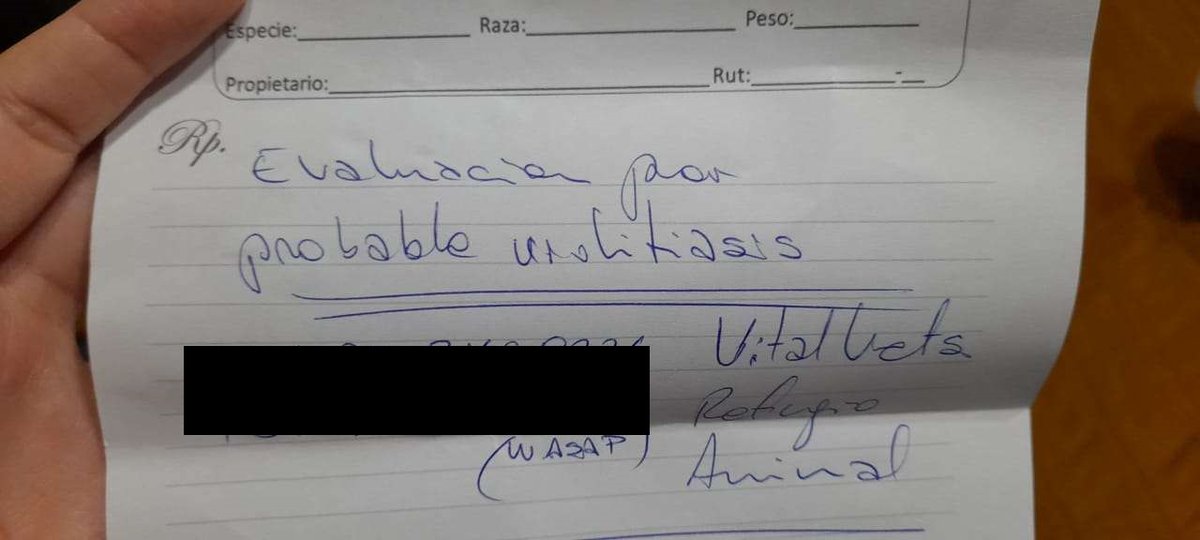 Especie:__________ Raza:__________ Peso:__________
Propietario:__________ Rut:__________-__
Rp.
Evaluacion por
probable urolitiasis
Vital Vets
Refugio
(WASAP) Animal